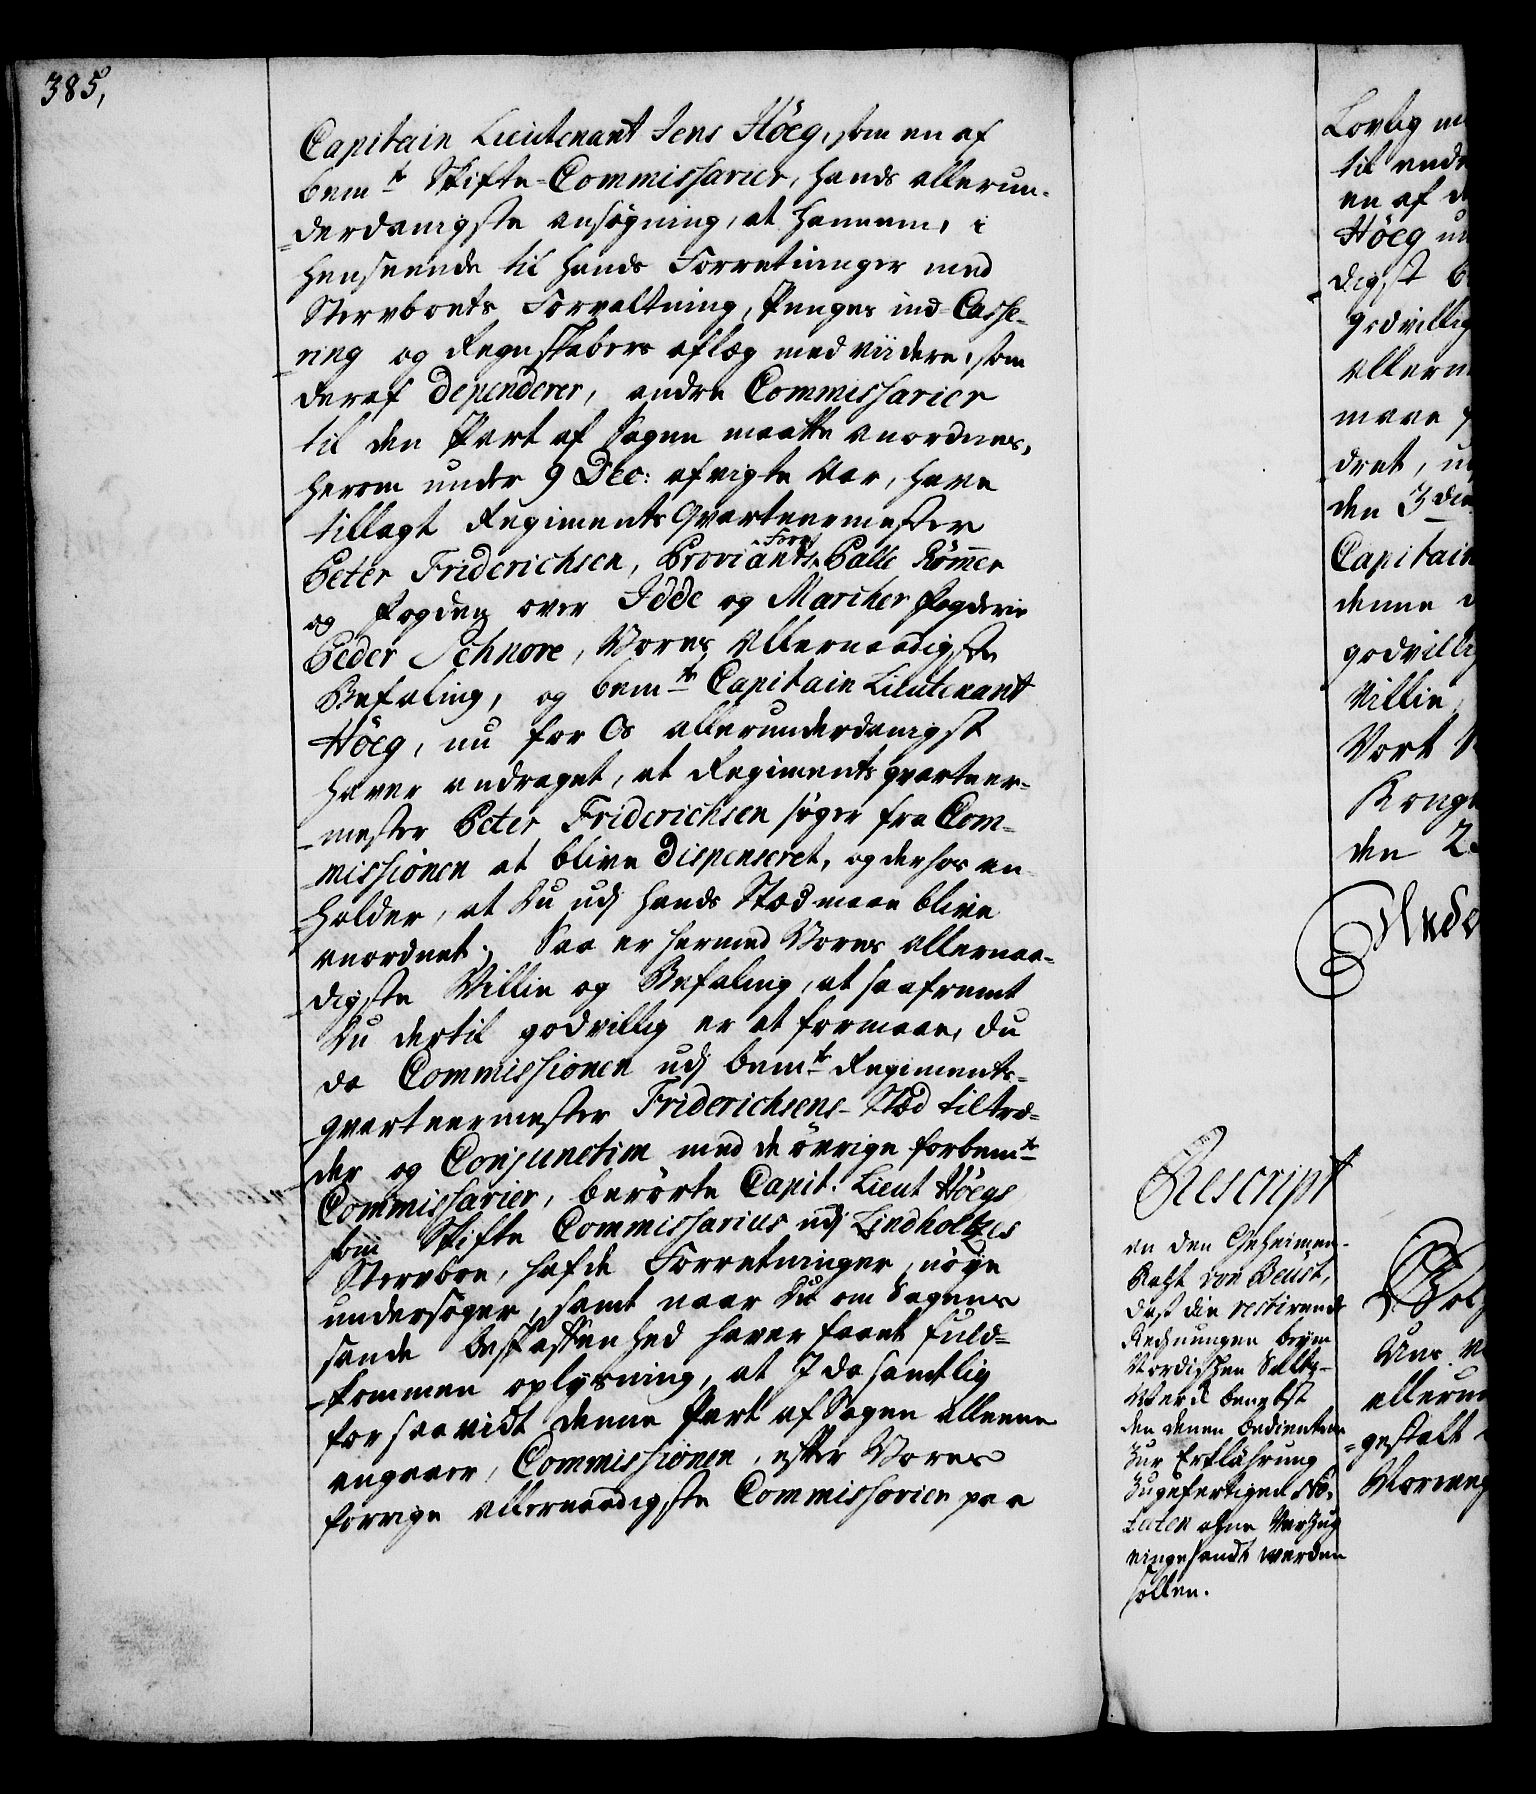 385,
Capitain Lieutenant Jens Höeg, som en af
bemte Skifte-Commissarier, hands allerun-
derdanigste ansøgning, at hannem, i
henseende til hands Forretninger med
Stervboets Forvaltning, Penges ind-Casse-
ring og Regnskabers aflæg med viidere, som
deraf dependerer, andre Commissarier
til den Part af Sagen maatte anordnes,
herom under 9 Dec: afvigte Aar, have
tillagt Regiments Qvarteermester
Peter Friderichsen, Proviants Forv: Palle Römer
og Fogden over Idde og Marcker Fogderie
Peder Schnore, Vores Allernaadigste
Befaling, og bemte Capitain Lieutenant
Höeg, nu for Os allerunderdanigst
haver andraget, at Regimentsqvarteer-
mester Peter Friderichsen søger fra Com-
missionen at blive dispenseret, og derhos an-
holder, at Du udj hands Stæd maae blive
anordnet; Saa er hermed Vores allernaa-
digste Villie og Befaling, at saafremt
Du dertil godvillig er at formaae, du
da Commissionen udj bemte Regiments-
qvarteermester Friderichsens Stæd tiltræ-
der og Conjunctim med de øvrige forbemte
Commissarier, berörte Capit: Lieut Höegs
som Skifte Commissarius udj Lindholtzes
Stervboe, hafde Forretninger, nøye
undersøger, samt naar Du om Sagens
sande beskaffenhed haver faaet fuld-
kommen oplysning, at I da samtlig
forsaavidt denne Part af Sagen alleene
angaaer, Commissionen, efter Vores
forrige allernaadigste Commissorier paa
Rescript
an den Geheimen-
Raht von Beust,
dast die restirende
Rechnungen beym
Nordischen Saltz-
Werck benebst
den denen bedienten
Zur Erklährung
Zugefertigen No-
taten ohne Verzug
eingesandt werden
sollen.
Lovlig
til
en af
Höeg
digst
godvillig
allern
maae
dret,
den 3 die
Capitain
denne
godvillig
Villie
Vort
Kong
den 2
Uns
allerun
gestalt
Norweg